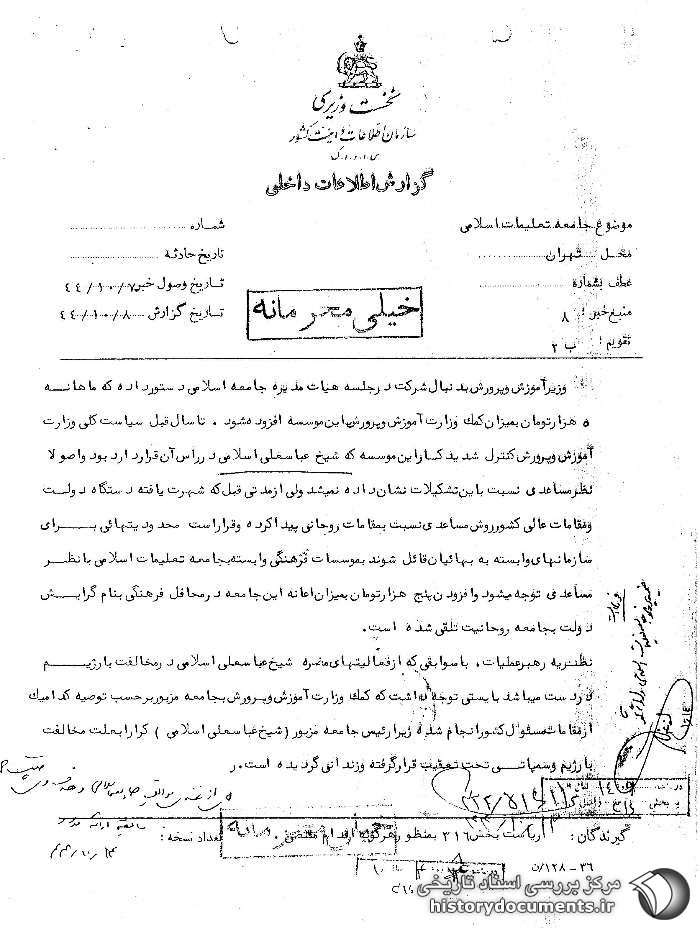 نخست وزیری
سازمان اطلاعات و امنیت کشور
س.ا.و.ا.ک
گزارش اطلاعات داخلی
موضوع جامعه تعلیمات اسلامی
شماره
محل تهران
تاریخ حادثه
عطف بشماره
تاریخ وصول خبر ۴۴/۱۰/۷
منبع خبر : ۸
تاریخ گزارش ۴۴/۱۰/۸
تقویم : ب ۲
خیلی محرمانه
وزیر آموزش و پرورش بدنبال شرکت در جلسه هیات مدیره جامعه اسلامی دستور داده که ماهانه
۵ هزار تومان بمیزان کمک وزارت آموزش و پرورش باین موسسه افزوده شود . تا سال قبل سیاست کلی وزارت
آموزش و پرورش کنترل شدید کار این موسسه که شیخ عباسعلی اسلامی در راس آن قرار دارد بود و اصولا
نظر مساعدی نسبت باین تشکیلات نشان داده نمیشد ولی از مدتی قبل که شهرت یافته دستگاه دولت
و مقامات عالی کشور روش مساعدی نسبت بمقامات روحانی پیدا کرده و قرار است محدودیتهائی برای
سازمانهای وابسته به بهائیان قائل شوند بموسسات فرهنگی وابسته بجامعه تعلیمات اسلامی با نظر
مساعدی توجه میشود و افزودن پنج هزار تومان بمیزان اعانه این جامعه در محافل فرهنگی بنام گرایش
دولت بجامعه روحانیت تلقی شده است.
نظریه رهبر عملیات . با سوابقی که از فعالیتهای مضره شیخ عباسعلی اسلامی در مخالفت با رژیم
در دست میباشد بایستی توجه داشت که کمک وزارت آموزش و پرورش بجامعه مزبور برحسب توصیه کدامیک
از مقامات مسئول کشور انجام شده زیرا رئیس جامعه مزبور (شیخ عباسعلی اسلامی ) کرارا بعلت مخالفت
با رژیم و سمپاشی تحت تعقیب قرار گرفته و زندانی گردیده است.
گیرندگان: ریاست بخش ۳۱۶ بمنظور هرگونه اقدام مقتضی .
تعداد نسخه :
۳۶-۱۲۸/ن
مرکز بررسی اسناد تاریخی
historydocuments.ir